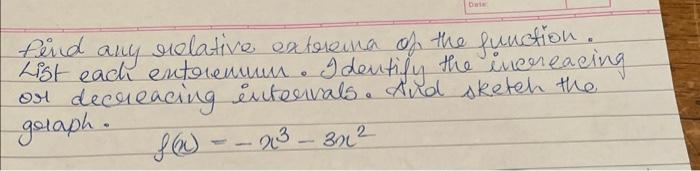 Date:
Find any relative extrema of the function.
List each extremum. Identify the increacing
or decreacing intervals. And sketch the
graph.
f(x) = - x³ - 3x²